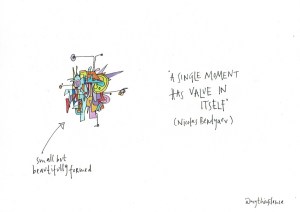 "A SINGLE MOMENT
HAS VALUE IN
ITSELF"
(Nicolas Berdyaev)
small but
beautifully formed